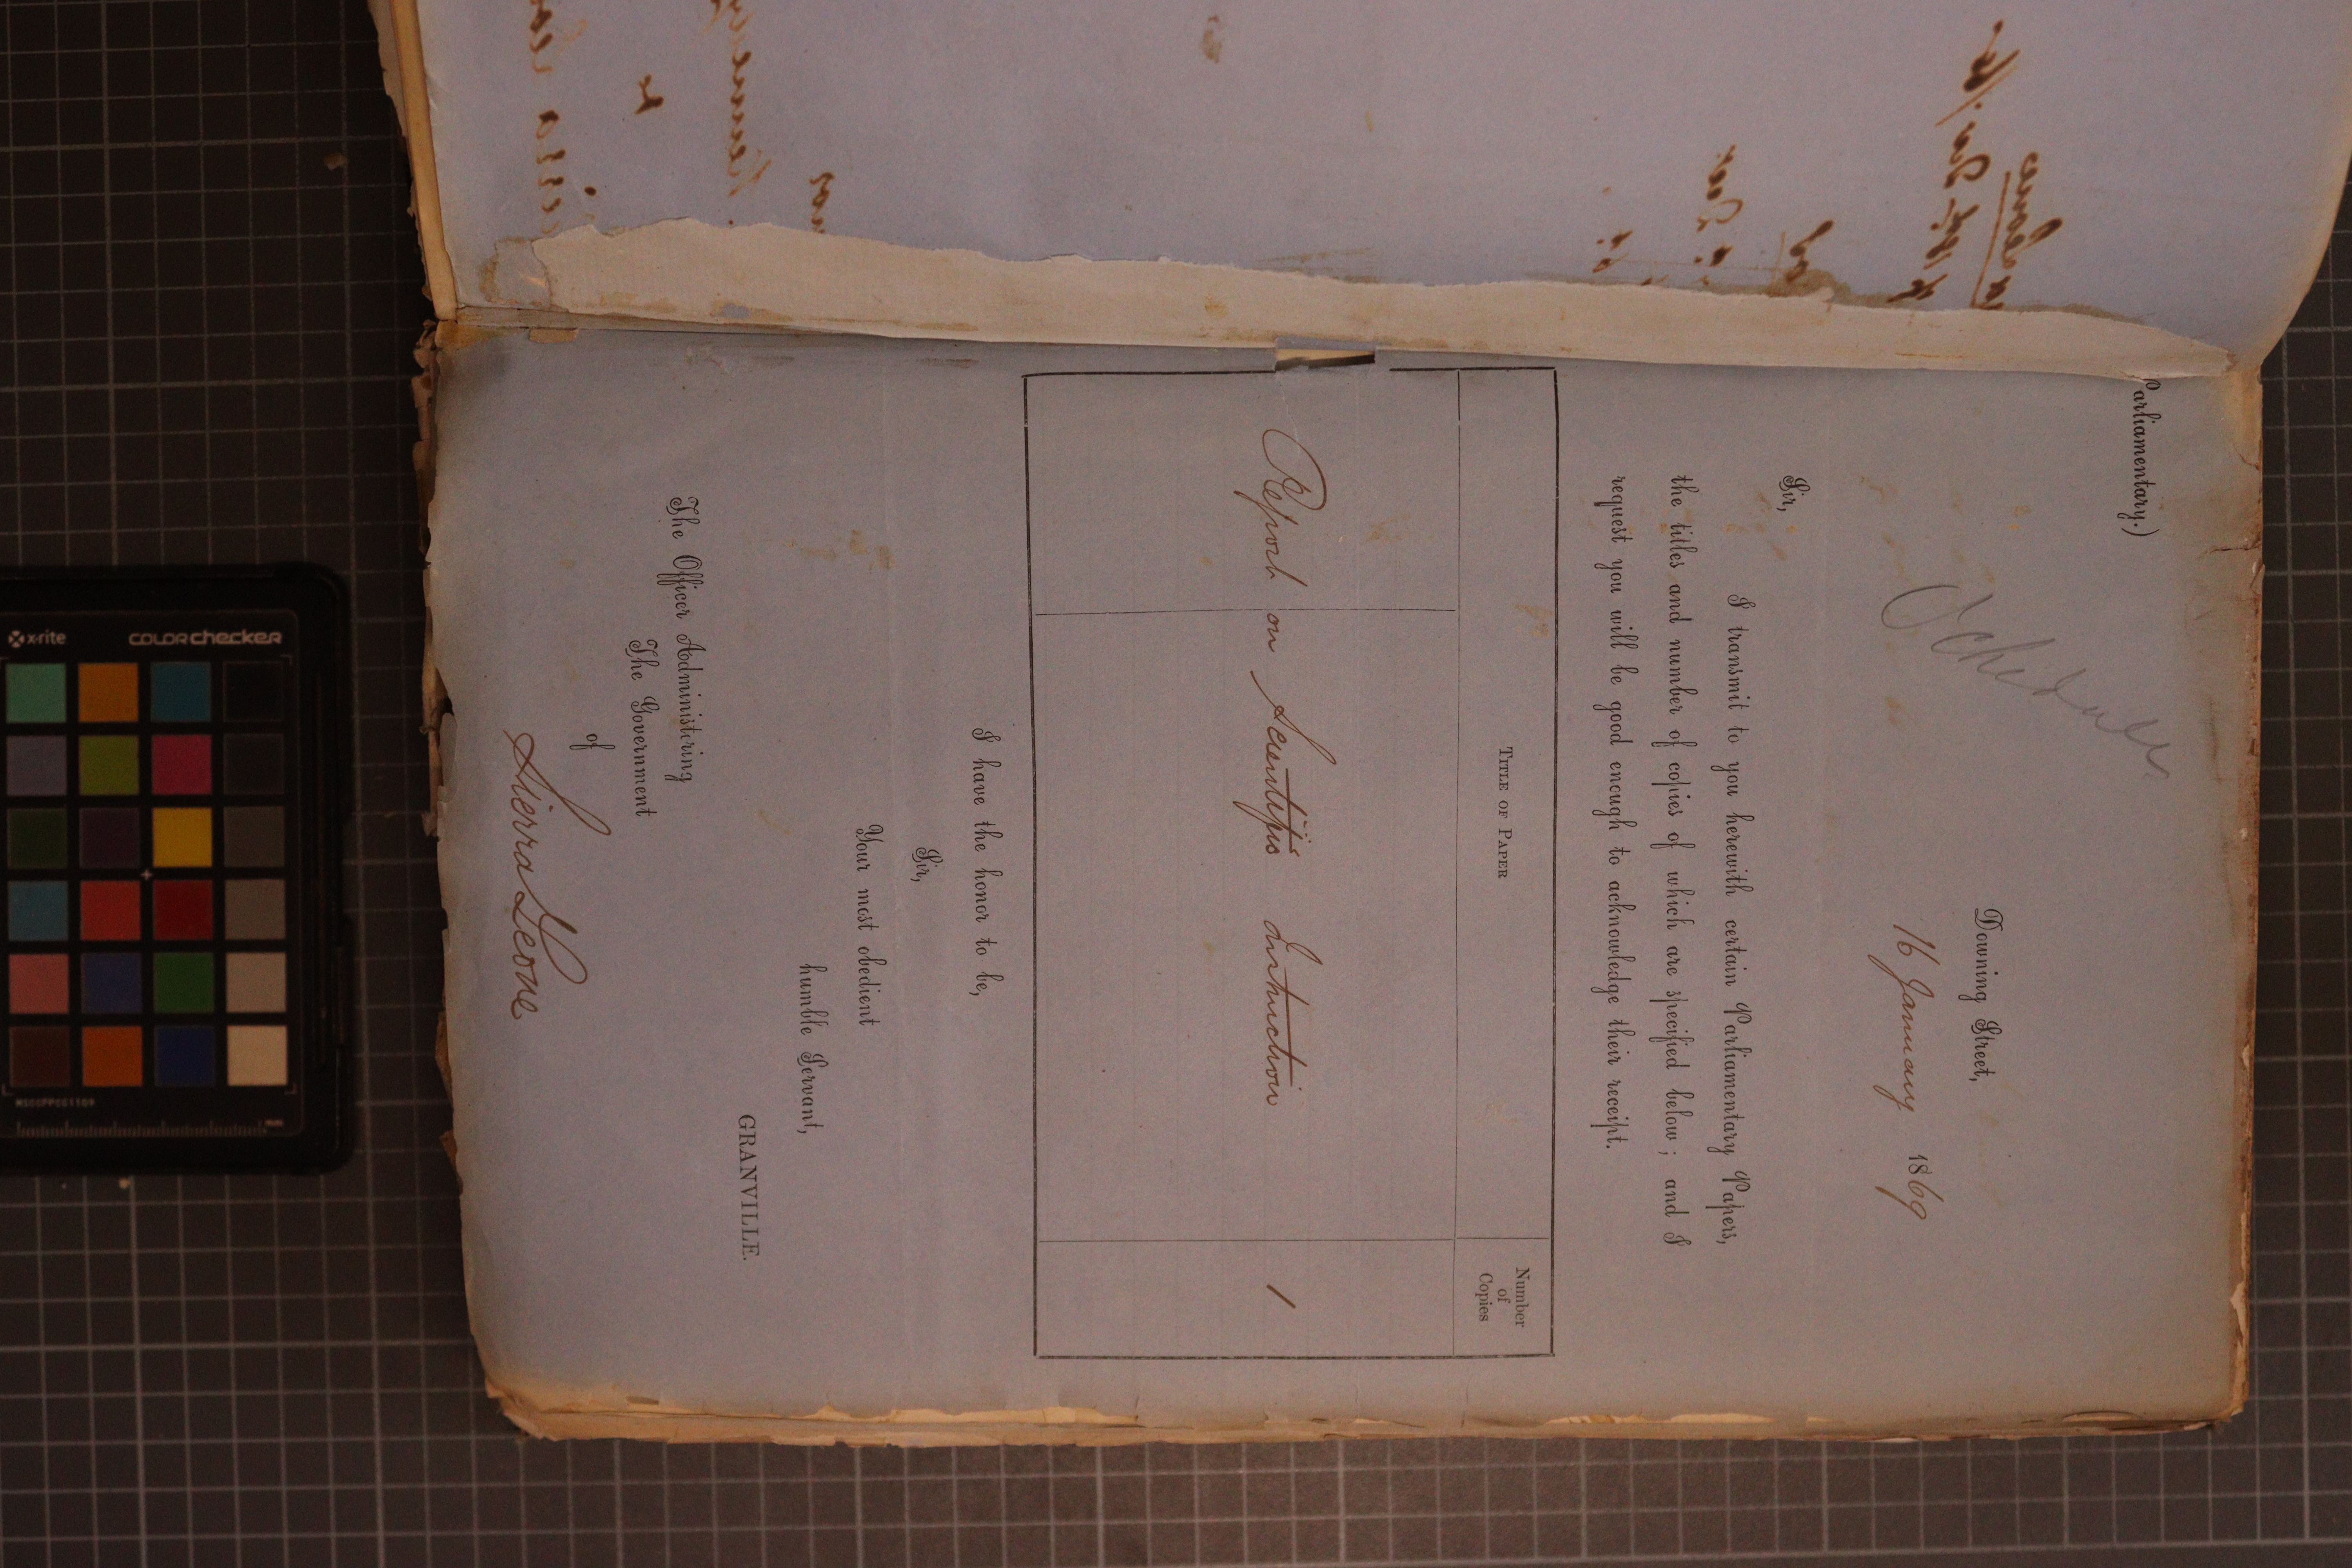 Parliamentary.)
Schedule
Downing Street,
16 January 1869
Sir,
I transmit to you herewith certain Parliamentary Papers,
the titles and number of copies of which are specified below; and I
request you will be good enough to acknowledge their receipt.
TITLE OF PAPER
Number
of
Copies
Report on Scientific Instruction 1
I have the honor to be,
Sir,
Your most obedient
humble Servant,
GRANVILLE.
The Officer Administering
The Government
of
Sierra Leone
x-rite
colorchecker